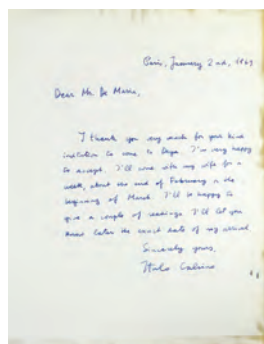 Paris, January 2nd, 1969
Dear Mr. De Marco,
I thank you very much for your kind
invitation to come to Daya. I'm very happy
to accept. I'll come with my wife for a
week, about the end of February or the
beginning of March. I'll be happy to
give a couple of readings. I'll let you
know later the exact date of my arrival.
Sincerely yours,
Italo Calvino